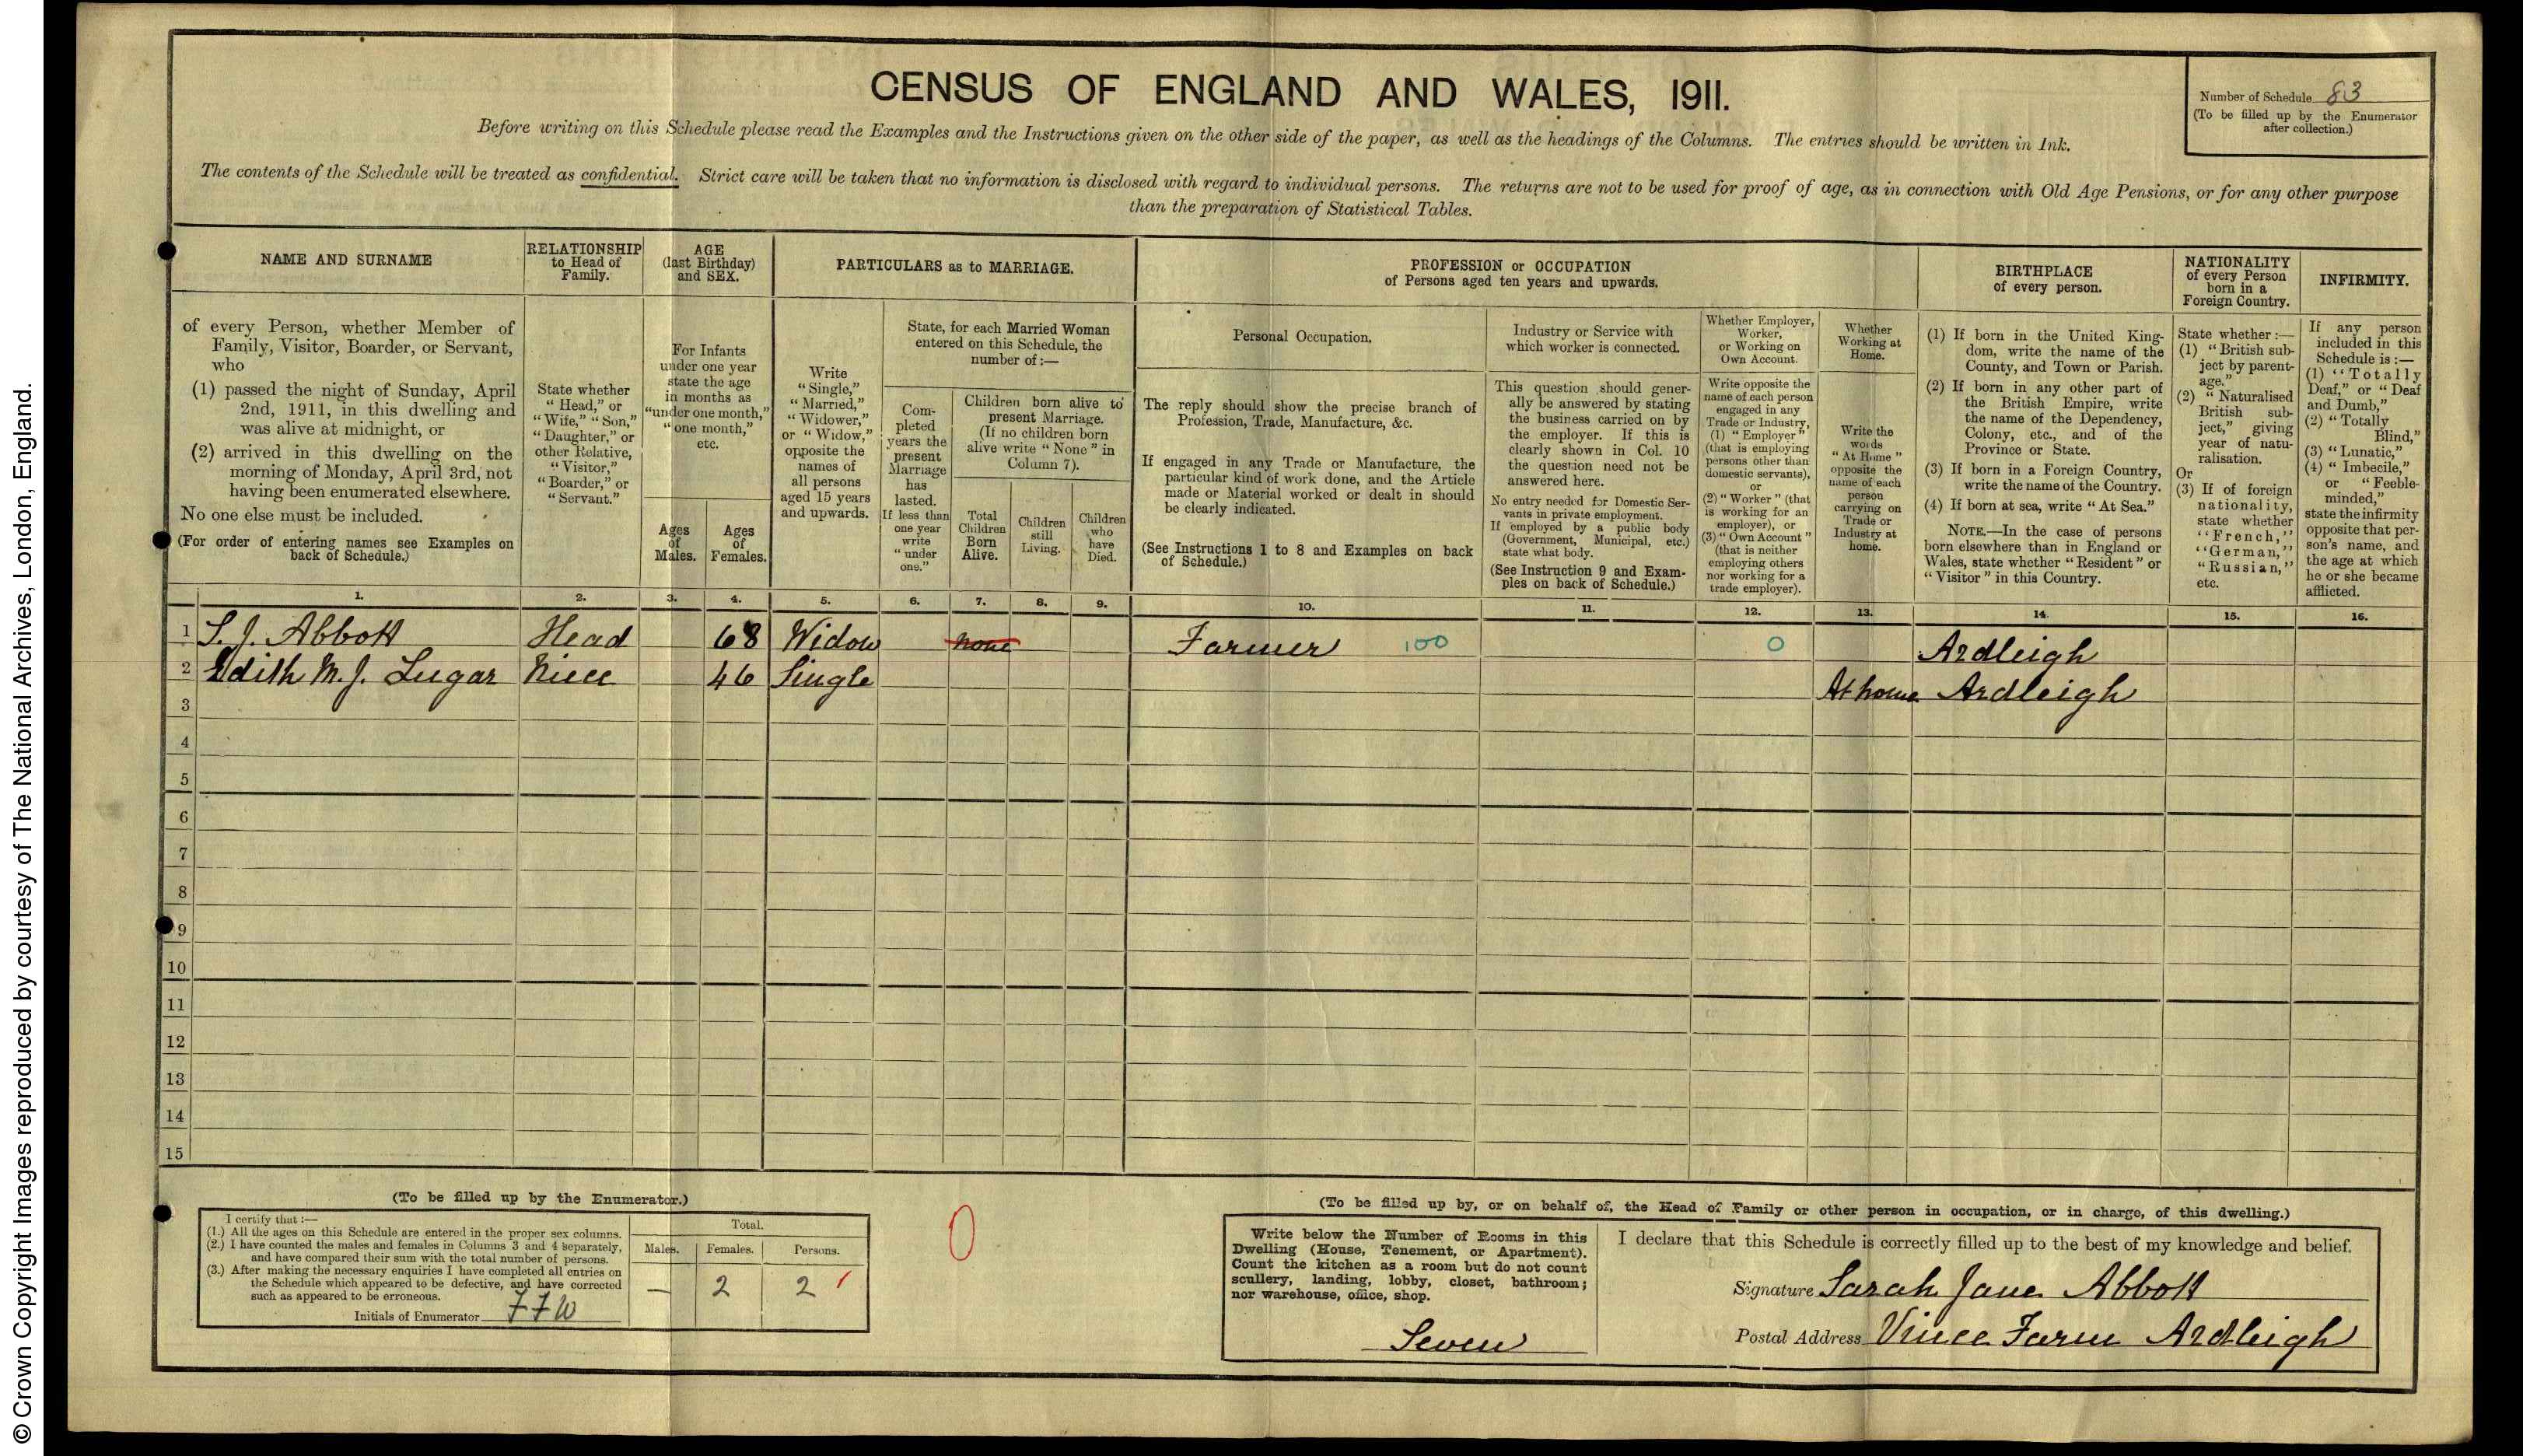 © Crown Copyright Images reproduced by courtesy of The National Archives, London, England.
CENSUS OF ENGLAND AND WALES, 1911.
Number of Schedule 83
(To be filled up by the Enumerator
after collection.)
Before writing on this Schedule please read the Examples and the Instructions given on the other side of the paper, as well as the headings of the Columns. The entries should be written in Ink.
The contents of the Schedule will be treated as confidential. Strict care will be taken that no information is disclosed with regard to individual persons. The returns are not to be used for proof of age, as in connection with Old Age Pensions, or for any other purpose
than the preparation of Statistical Tables.
NAME AND SURNAME
of every Person, whether Member of
Family, Visitor, Boarder, or Servant,
who
(1) passed the night of Sunday, April
2nd, 1911, in this dwelling and
was alive at midnight, or
(2) arrived in this dwelling on the
morning of Monday, April 3rd, not
having been enumerated elsewhere.
No one else must be included.
(For order of entering names see Examples on
back of Schedule.)
RELATIONSHIP
to Head of
Family.
State whether
"Head," or
"Wife," "Son,"
"Daughter," or
other Relative,
"Visitor,"
"Boarder," or
"Servant."
AGE
(last Birthday)
and SEX.
For Infants
under one year
state the age
in months as
"under one month,"
"one month,"
etc.
Ages
of
Males.
Ages
of
Females.
PARTICULARS as to MARRIAGE.
Write
"Single,"
"Married,"
"Widower,"
or "Widow,"
opposite the
names of
all persons
aged 15 years
and upwards.
State, for each Married Woman
entered on this Schedule, the
number of :—
Com-
pleted
years the
present
Marriage
has
lasted.
If less than
one year
write
"under
one."
Children born alive to
present Marriage.
(If no children born
alive write "None" in
Column 7).
Total
Children
Born
Alive.
Children
still
Living.
Children
who
have
Died.
PROFESSION or OCCUPATION
of Persons aged ten years and upwards.
Personal Occupation.
The reply should show the precise branch of
Profession, Trade, Manufacture, &c.
If engaged in any Trade or Manufacture, the
particular kind of work done, and the Article
made or Material worked or dealt in should
be clearly indicated.
(See Instructions 1 to 8 and Examples on back
of Schedule.)
Industry or Service with
which worker is connected.
This question should gener-
ally be answered by stating
the business carried on by
the employer. If this is
clearly shown in Col. 10
the question need not be
answered here.
No entry needed for Domestic Ser-
vants in private employment.
If employed by a public body
(Government, Municipal, etc.)
state what body.
(See Instruction 9 and Exam-
ples on back of Schedule.)
Whether Employer,
Worker,
or Working on
Own Account.
Write opposite the
name of each person
engaged in any
Trade or Industry,
(1) "Employer"
(that is employing
persons other than
domestic servants),
or
(2) "Worker" (that
is working for an
employer), or
(3) "Own Account"
(that is neither
employing others
nor working for a
trade employer).
Whether
Working at
Home.
Write the
words
"At Home"
opposite the
name of each
person
carrying on
Trade or
Industry at
home.
BIRTHPLACE
of every person.
(1) If born in the United King-
dom, write the name of the
County, and Town or Parish.
(2) If born in any other part of
the British Empire, write
the name of the Dependency,
Colony, etc., and of the
Province or State.
(3) If born in a Foreign Country,
write the name of the Country.
(4) If born at sea, write "At Sea."
NOTE.—In the case of persons
born elsewhere than in England or
Wales, state whether "Resident" or
"Visitor" in this Country.
NATIONALITY
of every Person
born in a
Foreign Country.
State whether :—
(1) "British sub-
ject by parent-
age."
(2) "Naturalised
British sub-
ject," giving
year of natu-
ralisation.
Or
(3) If of foreign
nationality,
state whether
"French,"
"German,"
"Russian,"
etc.
INFIRMITY.
If any person
included in this
Schedule is :—
(1) "Totally
Deaf," or "Deaf
and Dumb,"
(2) "Totally
Blind,"
(3) "Lunatic,"
(4) "Imbecile,"
or "Feeble-
minded,"
state the infirmity
opposite that per-
son's name, and
the age at which
he or she became
afflicted.
1. 2. 3. 4. 5. 6. 7. 8. 9. 10. 11. 12. 13. 14. 15. 16.
1 S. J. Abbott Head 68 Widow none Farmer 100 0 Ardleigh
2 Edith M. J. Lugar Niece 46 Single At home Ardleigh
3
4
5
6
7
8
9
10
11
12
13
14
15
(To be filled up by the Enumerator.)
I certify that :—
(1.) All the ages on this Schedule are entered in the proper sex columns.
(2.) I have counted the males and females in Columns 3 and 4 separately,
and have compared their sum with the total number of persons.
(3.) After making the necessary enquiries I have completed all entries on
the Schedule which appeared to be defective, and have corrected
such as appeared to be erroneous.
Initials of Enumerator FFW
Total.
Males. Females. Persons.
— 2 2
0
(To be filled up by, or on behalf of, the Head of Family or other person in occupation, or in charge, of this dwelling.)
Write below the Number of Rooms in this
Dwelling (House, Tenement, or Apartment).
Count the kitchen as a room but do not count
scullery, landing, lobby, closet, bathroom;
nor warehouse, office, shop.
Seven
I declare that this Schedule is correctly filled up to the best of my knowledge and belief.
Signature Sarah Jane Abbott
Postal Address Vince Farm Ardleigh